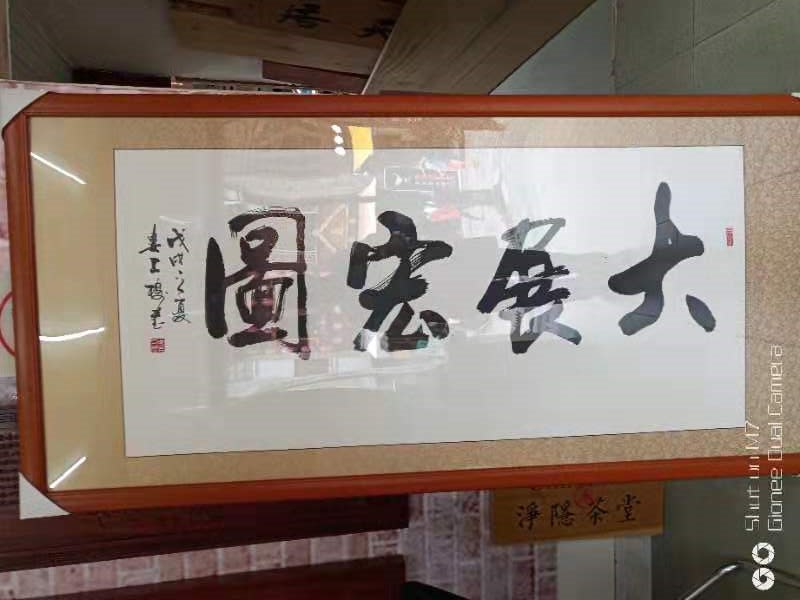 大展宏圖
戊戌之夏
淨隱茶堂
Shot on M7
Gionee Dual Camera